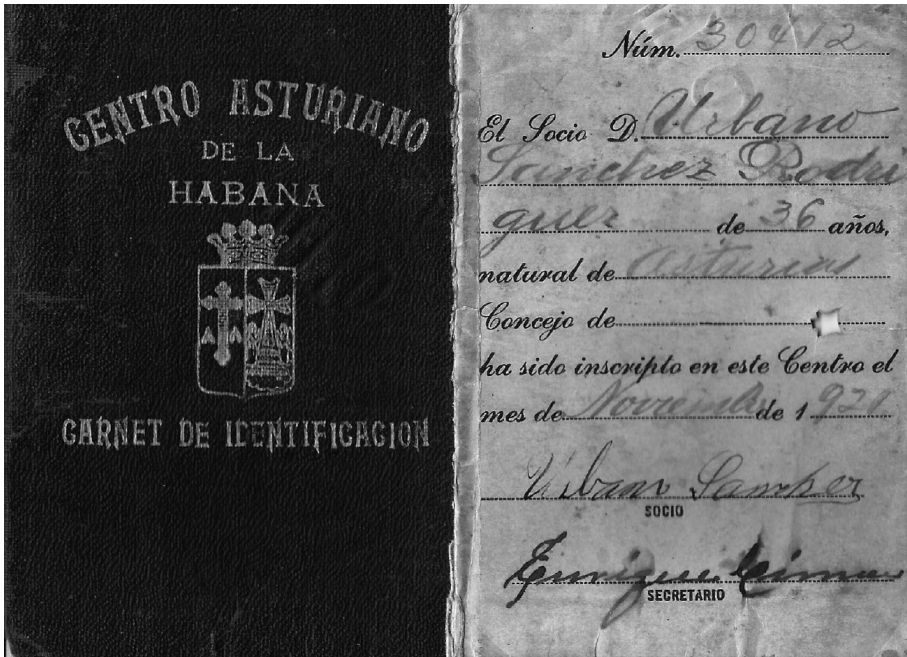 CENTRO ASTURIANO
DE LA
HABANA
CARNET DE IDENTIFICACION
Núm. 30412
El Socio D. Urbano
Sanchez Rodri
guez de 36 años,
natural de Asturias
Concejo de
ha sido inscripto en este Centro el
mes de Noviembre de 1920
Urbano Sanchez
SOCIO
Enrique Cima
SECRETARIO